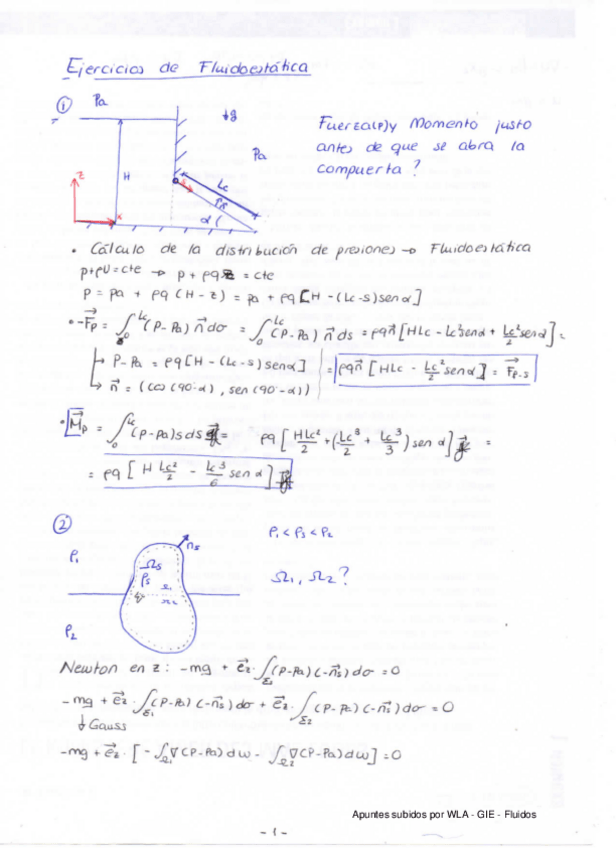 Ejercicios de Fluidoestática
① Pa
↓g
Pa
H
Lc
s
PR
α
z
x
Fuerza(P)y Momento justo
antes de que se abra la
compuerta?
• Cálculo de la distribución de presiones → Fluidoestática
p+ρU=cte → p + ρgz = cte
p = pa + ρg (H - z) = pa + ρg[H - (Lc-s)senα]
• -Fp = ∫₀^Lc (P-Pa) n dσ = ∫₀^Lc (P-Pa) n ds = ρgn [HLc - Lc²senα + Lc²/2 senα] =
↳ P-Pa = ρg[H - (Lc-s)senα] = ρgn [HLc - Lc²/2 senα] = Fp-s
↳ n = (cos(90-α), sen(90-α))
• Mp = ∫₀^Lc (p-pa)s ds = ρg [HLc²/2 + (-Lc³/2 + Lc³/3) sen α] =
= ρg [H Lc²/2 - Lc³/6 sen α]
②
ρ₁
ns
Ωs
ρs
Ω₁
Ω₂
ρ₂
ρ₁ < ρs < ρ₂
Ω₁, Ω₂?
Newton en z: -mg + ez · ∫Σs (P-Pa)(-ns)dσ = 0
-mg + ez · ∫Σ₁ (P-Pa)(-ns)dσ + ez · ∫Σ₂ (P-Pa)(-ns)dσ = 0
↓ Gauss
-mg + ez · [-∫Ω₁ ∇(P-Pa)dω - ∫Ω₂ ∇(P-Pa)dω] = 0
Apuntes subidos por WLA - GIE - Fluidos
- 1 -